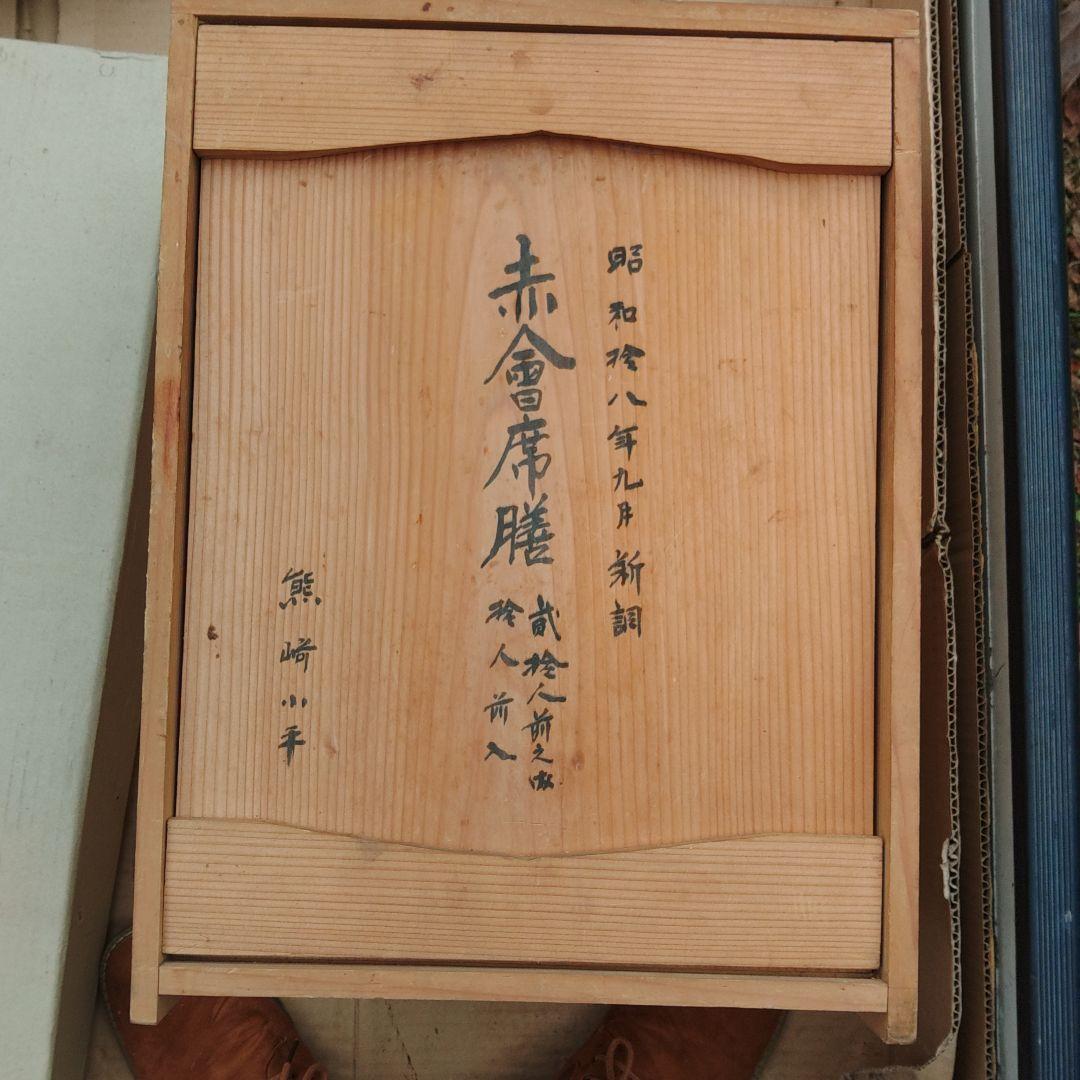 昭和拾八年九月新調
赤會席膳
貳拾人前之内
拾人前入
熊崎小平